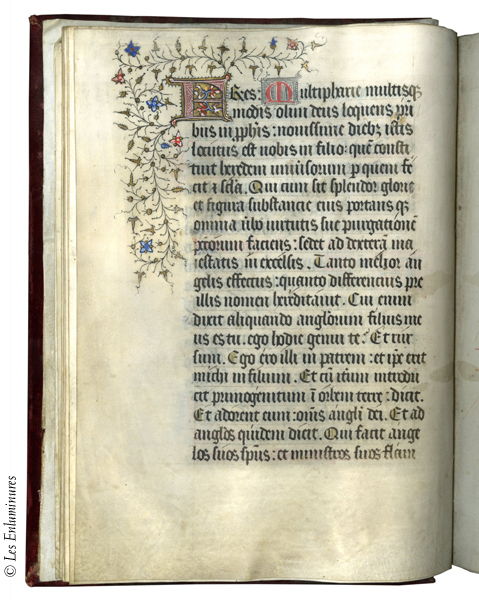 FRes: Multipharie multisq3
modis olim deus loquens pri
bus in pphis: nouissime dieb3 istis
locutus est nobis in filio: quē consti
tuit heredem uniuersorum p quem fe
cit & scla. Qui cum sit splendor glorie
et figura substancie eius portans q3
omnia ūbo uirtutis sue purgationē
pctorum faciens: sedet ad dexterā ma
iestatis in excelsis. Tanto melior an
gelis effectus: quanto differencius pre
illis nomen hereditauit. Cui enim
dixit aliquando anglorum filius me
us es tu. ego hodie genui te. Et rur
sum. Ego ero illi in patrem: et ipse erit
michi in filium. Et cū itum introdu
cit primogenitum ī orbem terre: dicit.
Et adorent eum: oms angli dei. Et ad
anglos quidem dicit. Qui facit ange
los suos spūs: et ministros suos flam
© Les Enluminures